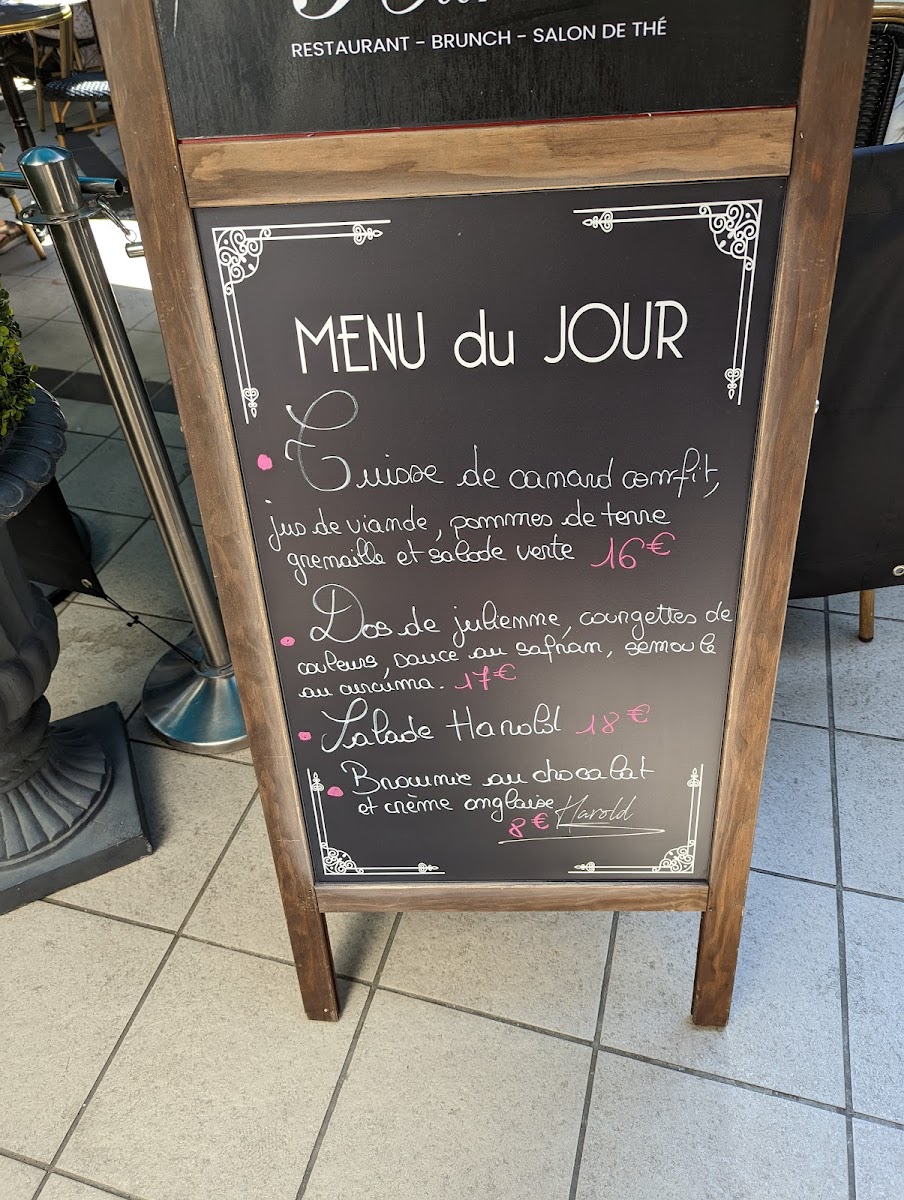 RESTAURANT - BRUNCH - SALON DE THÉ
MENU du JOUR
Cuisse de canard confit,
jus de viande, pommes de terre
grenaille et salade verte 16€
Dos de julienne, courgettes de
couleurs, sauce au safran, semoule
au curcuma. 17€
Salade Harold 18€
Brownie au chocolat
et crème anglaise
8€ Harold